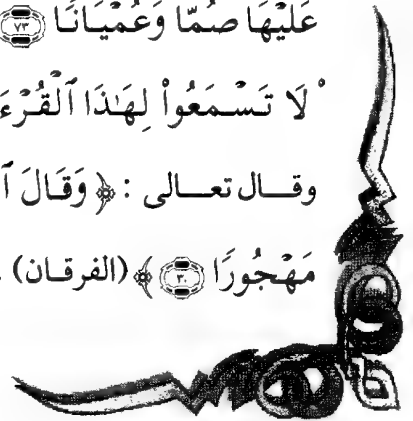 عَلَيْهَا صُمًّا وَعُمْيَانًا ﴿٧٣﴾
لَا تَسْمَعُوا۟ لِهَـٰذَا ٱلْقُرْءَ
وقـال تعـالى : ﴿ وَقَالَ ٱ
مَهْجُورًا ﴿٣٠﴾ ﴾ (الفرقان) .